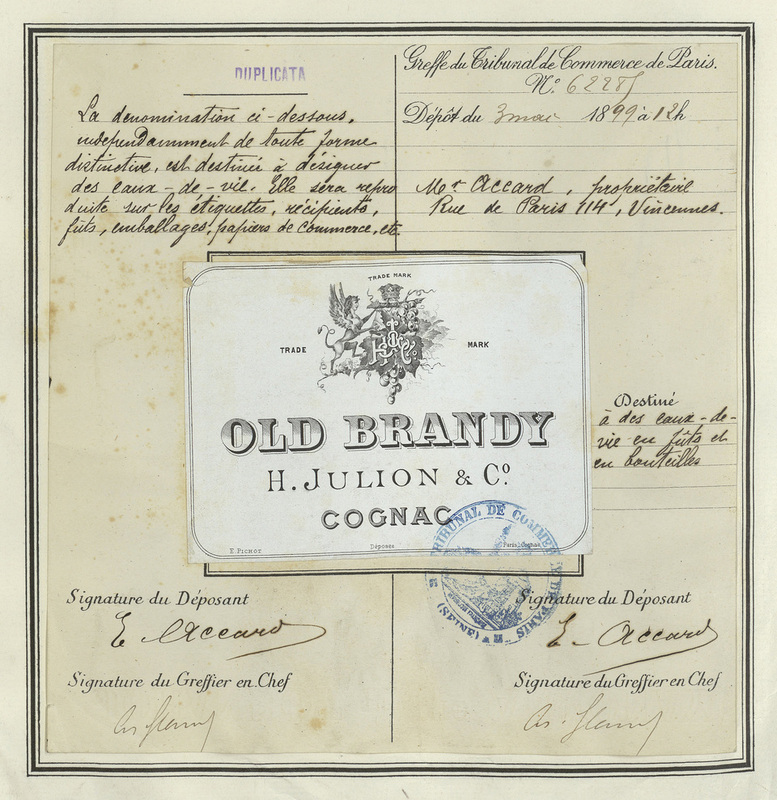 DUPLICATA
La dénomination ci-dessous,
independamment de toute forme
distinctive, est destinée à désigner
des eaux-de-vie. Elle sera repro
duite sur les étiquettes, récipients,
fûts, emballages, papiers de commerce, etc
Greffe du Tribunal de Commerce de Paris.
N.º
Dépôt du 3 mai 1899 à 12h
Mr Accard, propriétaire
Rue de Paris 114, Vincennes.
TRADE MARK
TRADE MARK
H J & Cº
OLD BRANDY
H. JULION & Cº
COGNAC
E. PICHOT
Déposée
Paris, Cognac
Destiné
à des eaux-de-
vie en fûts et
en bouteilles
TRIBUNAL DE COMMERCE DE PARIS
(SEINE)
Signature du Déposant
E. Accard
Signature du Greffier en Chef
Signature du Déposant
E. Accard
Signature du Greffier en Chef